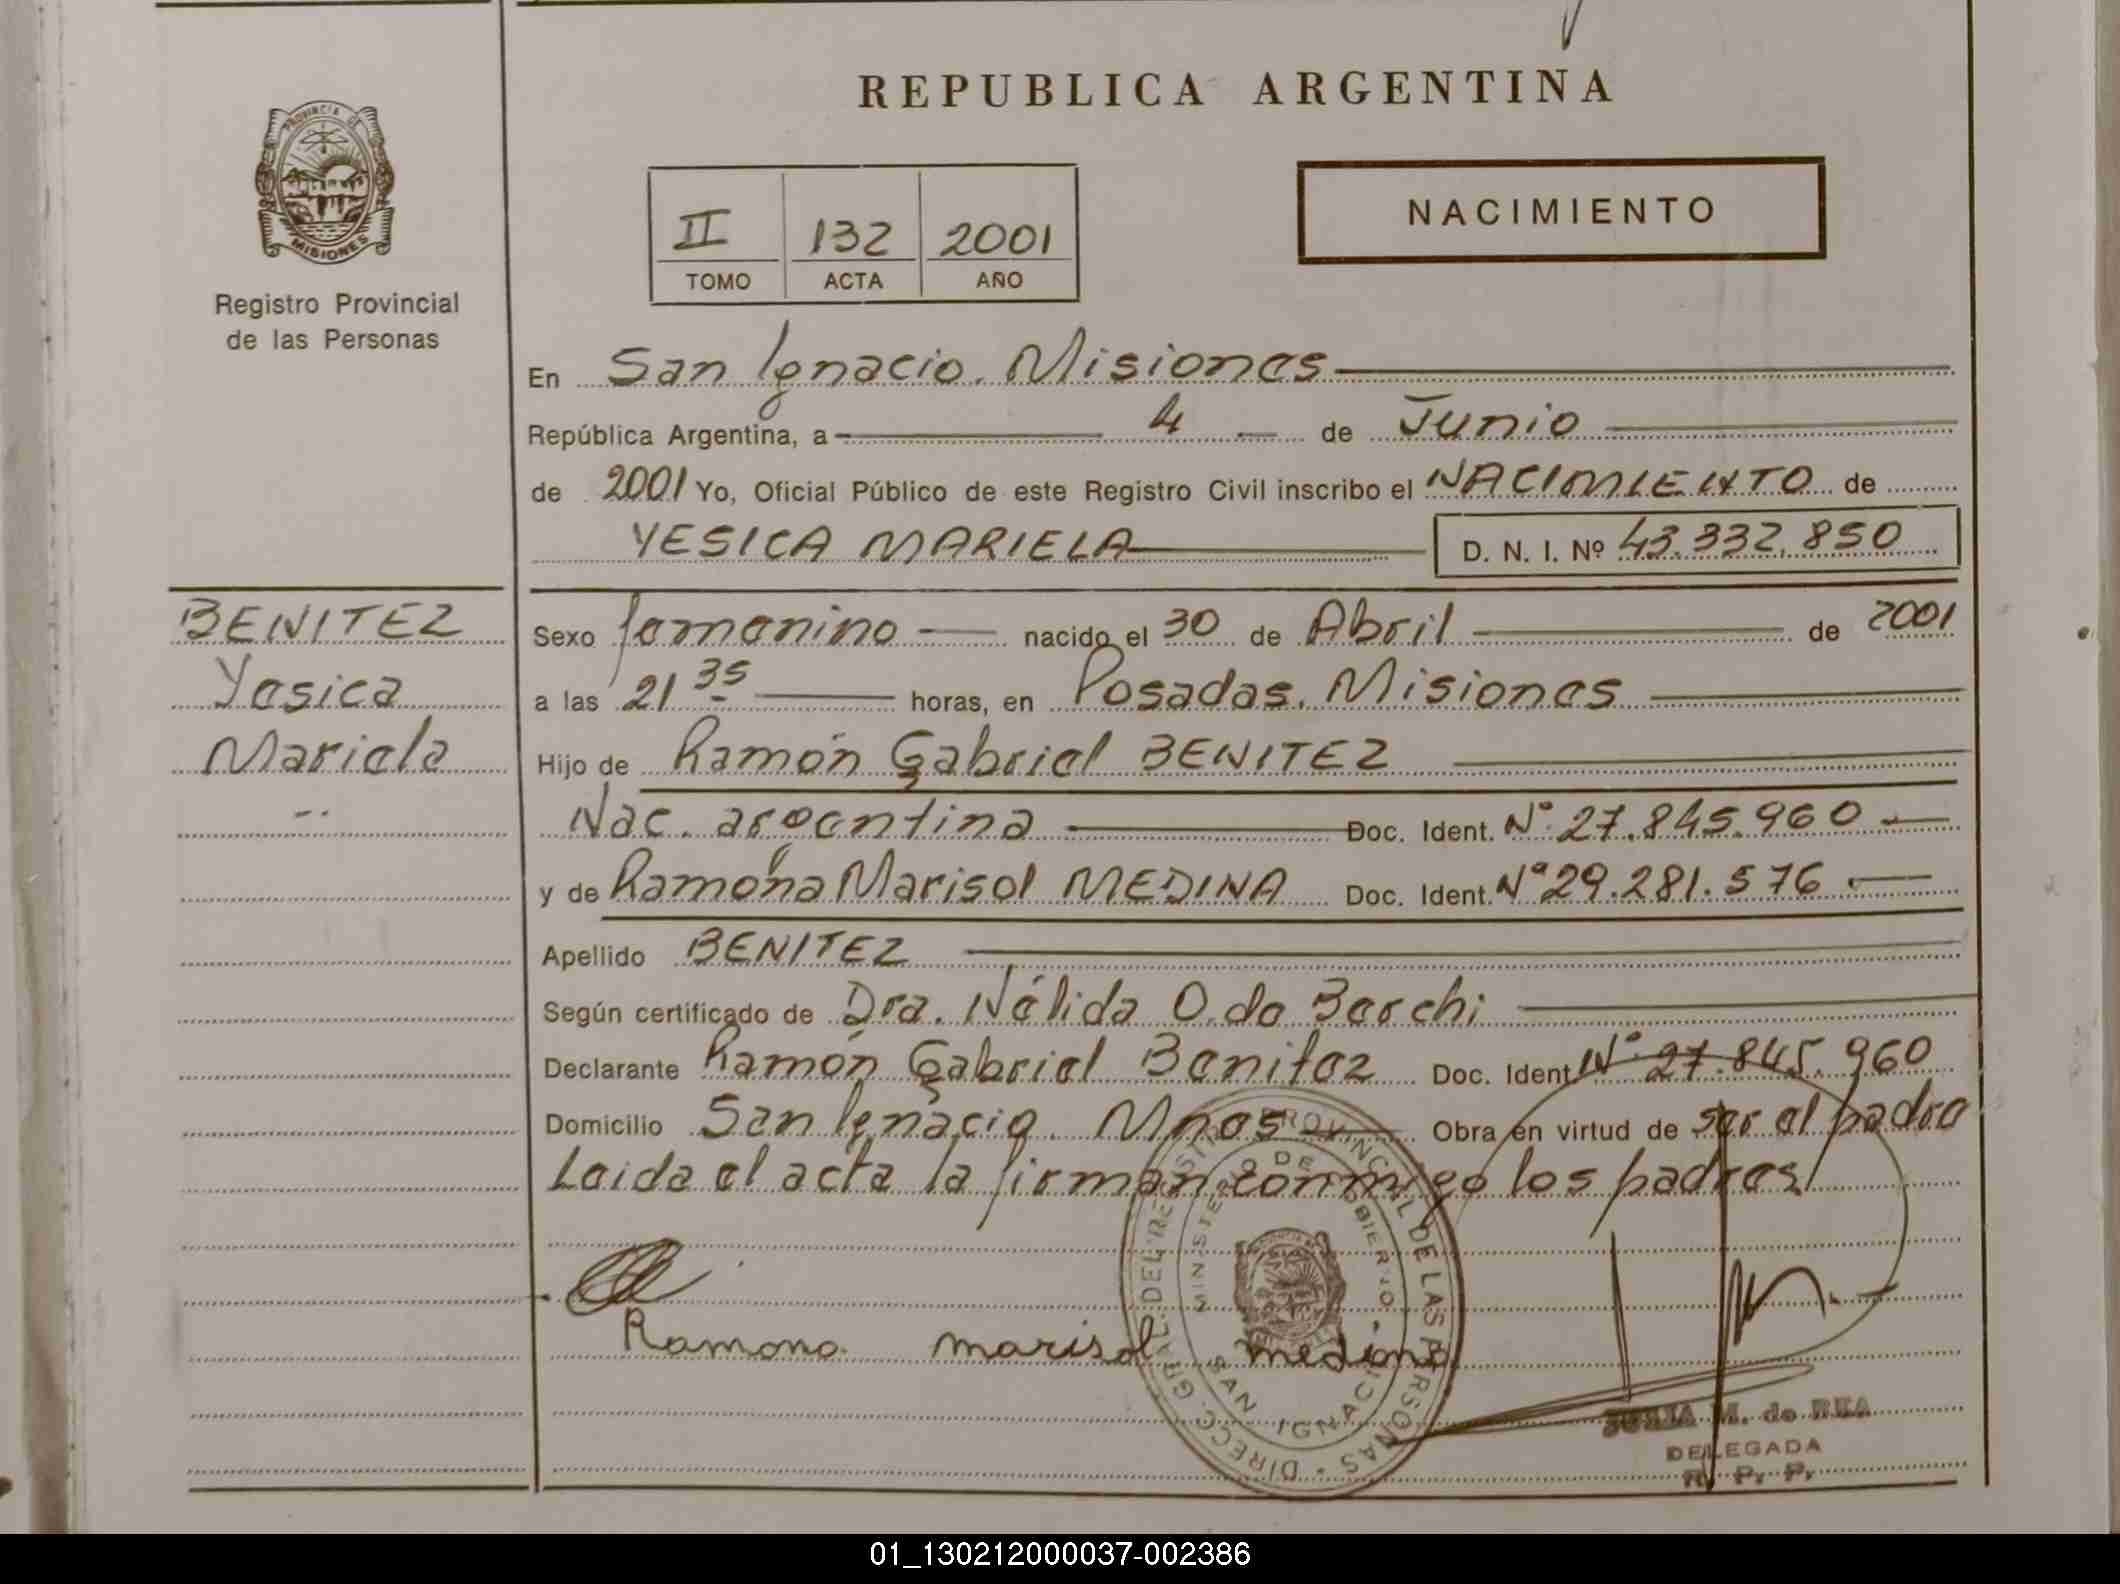 REPUBLICA ARGENTINA
PROVINCIA DE
MISIONES
Registro Provincial
de las Personas
II 132 2001
TOMO ACTA AÑO
NACIMIENTO
En San Ignacio. Misiones
República Argentina, a 4 de Junio
de 2001 Yo, Oficial Público de este Registro Civil inscribo el NACIMIENTO de
YESICA MARIELA D. N. I. Nº 43.332.850
BENITEZ
Yesica
Mariela
Sexo femenino nacido el 30 de Abril de 2001
a las 21 35 horas, en Posadas. Misiones
Hijo de Ramón Gabriel BENITEZ
Nac. argentina Doc. Ident. Nº 27.845.960
y de Ramona Marisol MEDINA Doc. Ident. Nº 29.281.576
Apellido BENITEZ
Según certificado de Dra. Nélida O. de Berchi
Declarante Ramón Gabriel Benitez Doc. Ident Nº 27.845.960
Domicilio San Ignacio. Mnes Obra en virtud de ser el padre
Leida el acta la firman conmigo los padres
Ramona marisol medina
DIRECC. GRAL. DEL REGISTRO PROVINCIAL DE LAS PERSONAS
MINISTERIO DE GOBIERNO
SAN IGNACIO
M. de REA
DELEGADA
R. P. P.
01_130212000037-002386